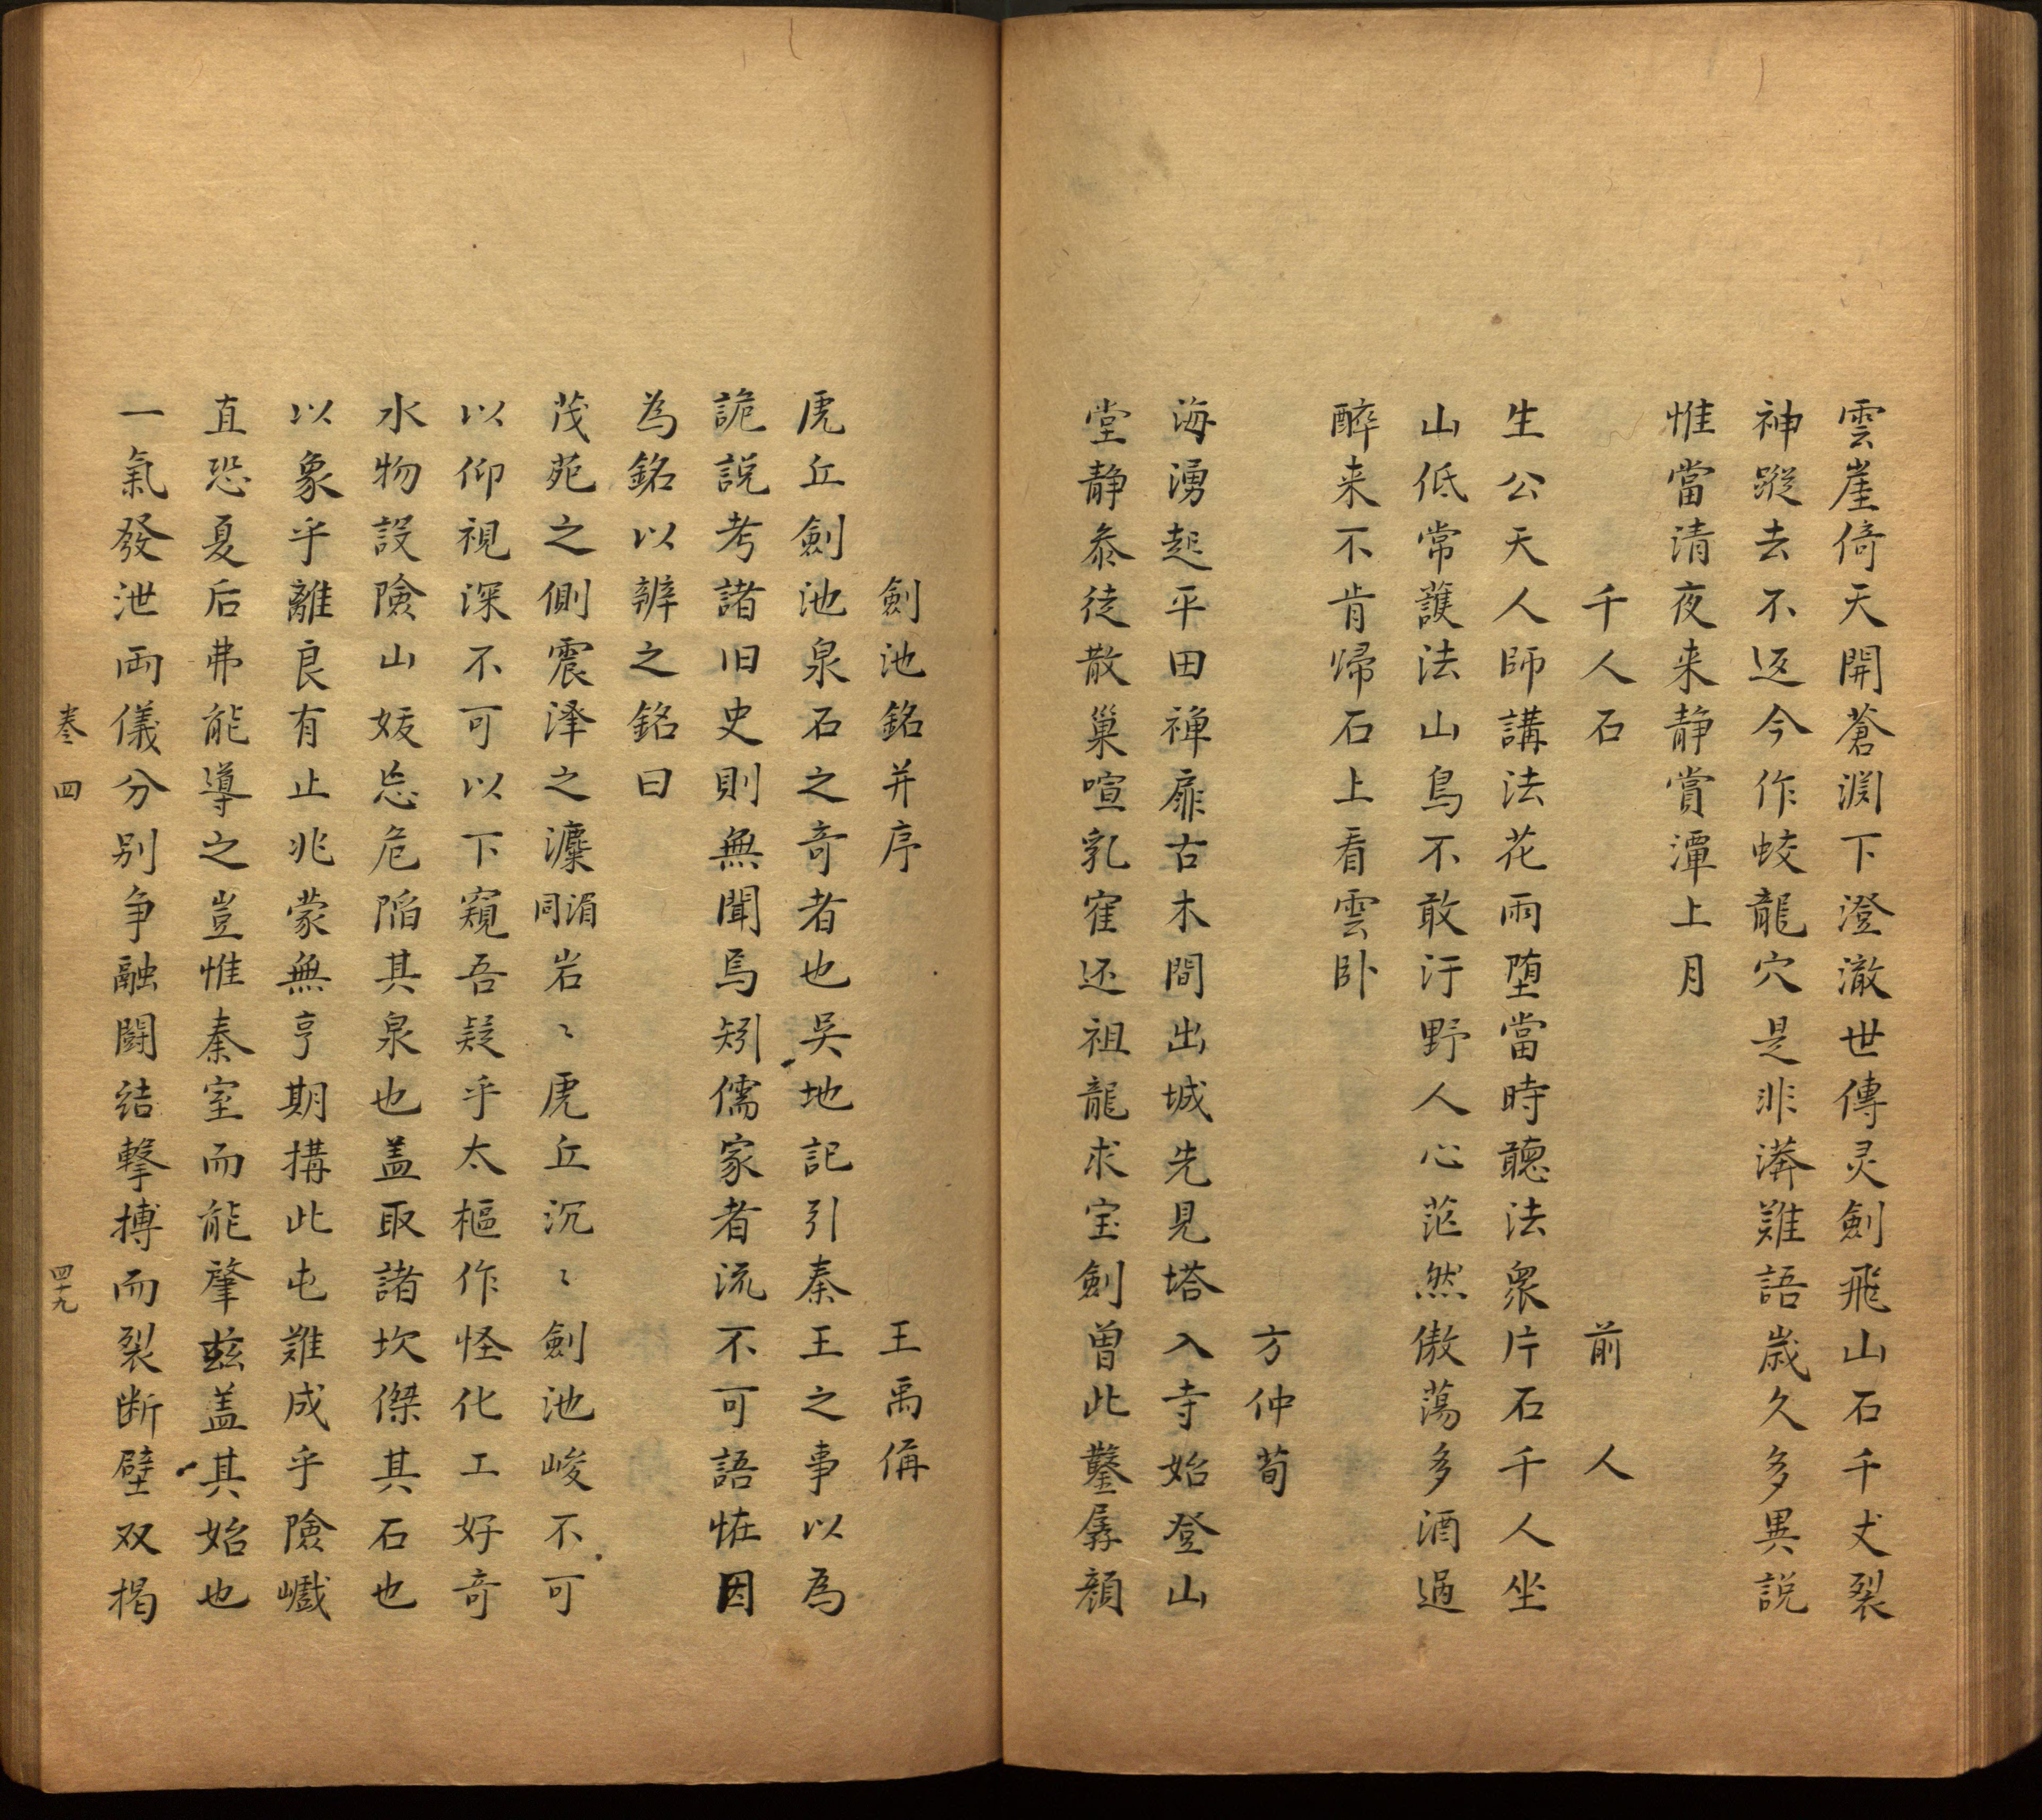 雲崖倚天開蒼淵下澄澈世傳灵劍飛山石千丈裂
神蹤去不返今作蛟龍穴是非漭難語歲久多異説
惟當清夜来静賞潭上月
千人石　前人
生公天人師講法花雨堕當時聽法衆片石千人坐
山低常護法山鳥不敢汙野人心茫然傲蕩多酒過
醉来不肯歸石上看雲卧
方仲荀
海湧起平田禅扉古木間出城先見塔入寺始登山
堂静叅徒散巢喧乳寉还祖龍求宝劍曽此鑿孱顔
劍池銘并序　王禹偁
虎丘劍池泉石之奇者也吴地記引秦王之事以為
詭説考諸旧史則無聞焉矧儒家者流不可語恠因
為銘以辨之銘曰
茂苑之側震泽之濂同湄岩〻虎丘沉〻劍池峻不可
以仰視深不可以下窺吾疑乎太樞作怪化工好奇
水物設險山妖忘危陷其泉也盖取諸坎傑其石也
以象乎離良有止兆蒙無亨期搆此屯難成乎險巇
直恐夏后弗能導之豈惟秦室而能肇兹盖其始也
一氣發泄両儀分别争融闘结擊搏而裂断壁双揭
卷四
四十九